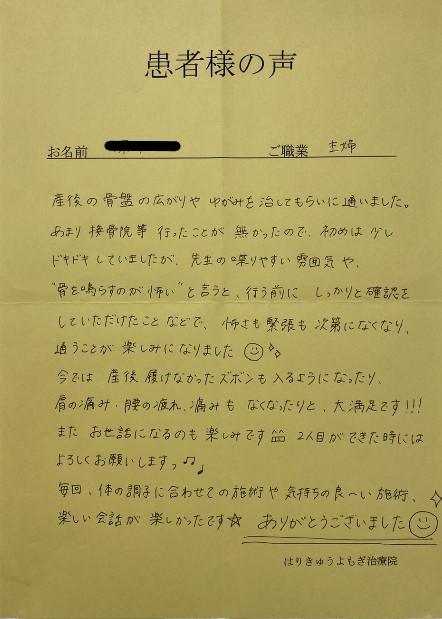 患者様の声
お名前 ご職業 主婦
産後の骨盤の広がりや ゆがみを治してもらいに通いました。
あまり 接骨院等 行ったことが 無かったので、初めは 少し
ドキドキ していましたが、先生の喋りやすい 雰囲気 や、
"骨を鳴らすのが怖い" と言うと、行う前に しっかりと確認を
していただけたこと などで、怖さも緊張も 次第になくなり、
通うことが 楽しみになりました ☺✧✧
今では 産後 履けなかったズボンも 入るようになったり、
肩の痛み・腰の疲れ、痛みも なくなったりと、大満足です!!!
また お世話になるのも 楽しみです♫ 2人目ができた時には
よろしくお願いしますっ♫♪
毎回、体の調子に合わせての 施術や 気持ちの良〜い施術、
楽しい会話が 楽しかったです☆ ありがとうございました☺✧
はりきゅうよもぎ治療院